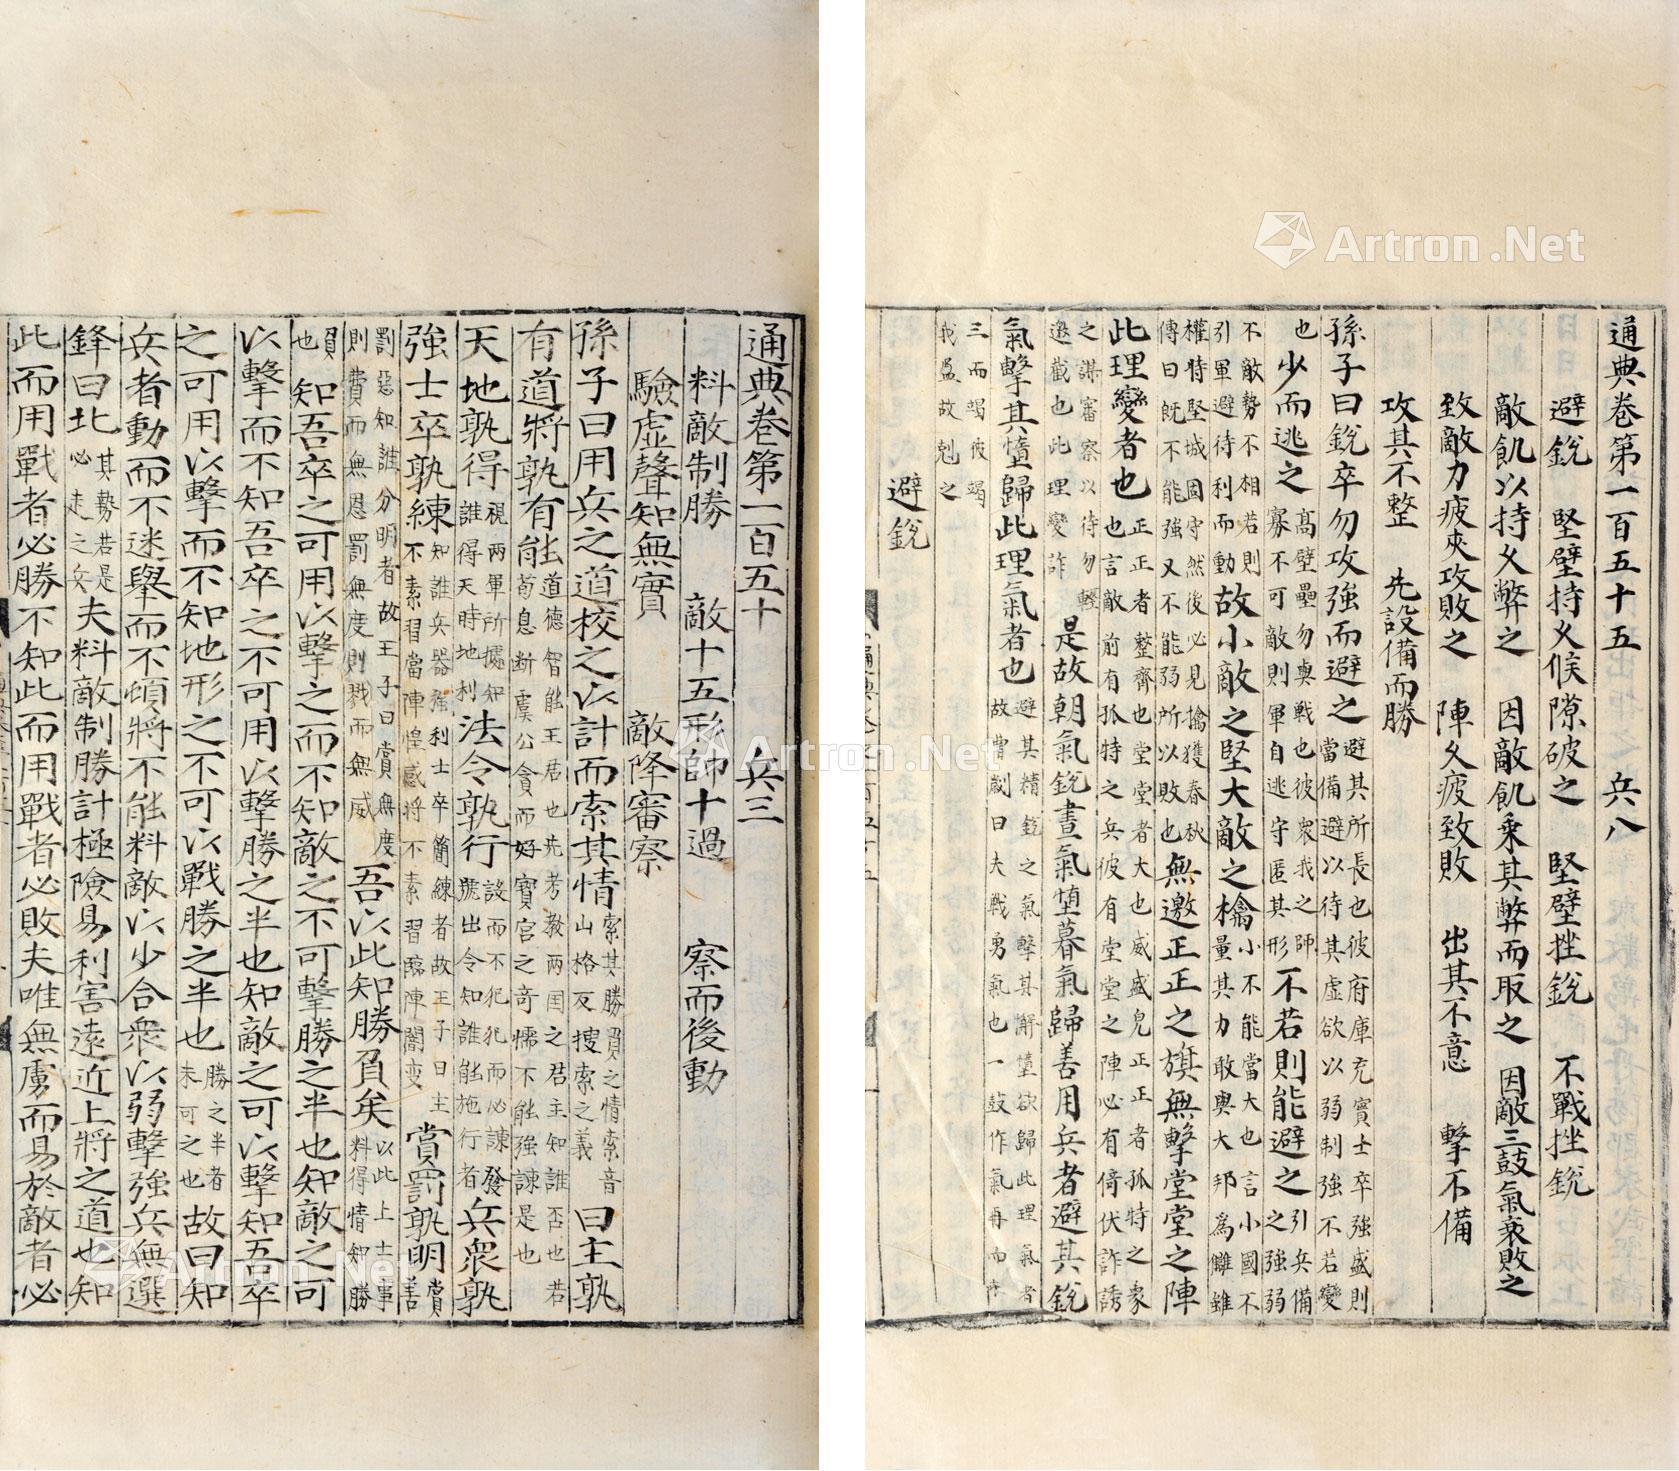 通典卷第一百五十五 兵八
避銳 堅壁持久候隙破之 堅壁挫銳 不戰挫銳
敵飢以持久弊之 因敵飢乘其弊而取之 因敵三鼓氣衰敗之
致敵力疲夾攻敗之 陣久疲致敗 出其不意 擊不備
攻其不整 先設備而勝
孫子曰銳卒勿攻強而避之避其所長也彼府庫充實士卒強盛則當備避以待其虛欲以弱制強不若變
也少而逃之高壁壘勿與戰也彼衆我之師寡不可敵則軍自逃守匿其形不若則能避之引兵備之強弱
不敵勢不相若則引軍避待利而動故小敵之堅大敵之檎小不能當大也言小國不量其力敢與大邦爲讎雖
權時堅城固守然後必見擒獲春秋傳曰旣不能強又不能弱所以敗也無邀正正之旗無擊堂堂之陣
此理變者也正正者整齊也堂堂者大也威盛皃正正者孤特之象也言敵前有孤特之兵彼有堂堂之陣必有倚伏詐誘
之謀審察以待勿輕邀截也此理變詐是故朝氣銳晝氣墮暮氣歸善用兵者避其銳
氣擊其墯歸此理氣者也避其精銳之氣擊其懈墯欲歸此理氣者故曹劌曰夫戰勇氣也一鼓作氣再而衰
三而竭彼竭我盈故剋之
避銳
通典卷第一百五十 兵三
料敵制勝 敵十五形帥十過 察而後動
驗虛聲知無實 敵降審察
孫子曰用兵之道校之以計而索其情索其勝負之情索音山格反搜索之義曰主孰
有道將孰有能道德智能王君也先考敎兩国之君主知誰否也若荀息斷虞公貪而好寶宮之奇懦不能強諫是也
天地孰得視兩軍所據知誰得天時地利法令孰行設而不犯犯而必諫發號出令知誰能施行者兵衆孰
強士卒孰練知誰兵器強利士卒簡練者故王子曰士不素習當陣惶惑將不素習臨陣闇變賞罰孰明賞善
罰惡知誰分明者故王子曰賞無度則費而無恩罰無度則戮而無威吾以此知勝負矣以此上七事料得情知勝
負也知吾卒之可用以擊之而不知敵之不可擊勝之半也知敵之可
以擊而不知吾卒之不可用以擊勝之半也知敵之可以擊知吾卒
之可用以擊而不知地形之不可以戰勝之半也勝之半者未可之也故曰知
兵者動而不迷舉而不頓將不能料敵以少合衆以弱擊強兵無選
鋒曰北其勢若是必走之兵夫料敵制勝計極險易利害遠近上將之道也知
此而用戰者必勝不知此而用戰者必敗夫唯無虜而易於敵者必
Artron.Net
Artron.Net
Artron.Net